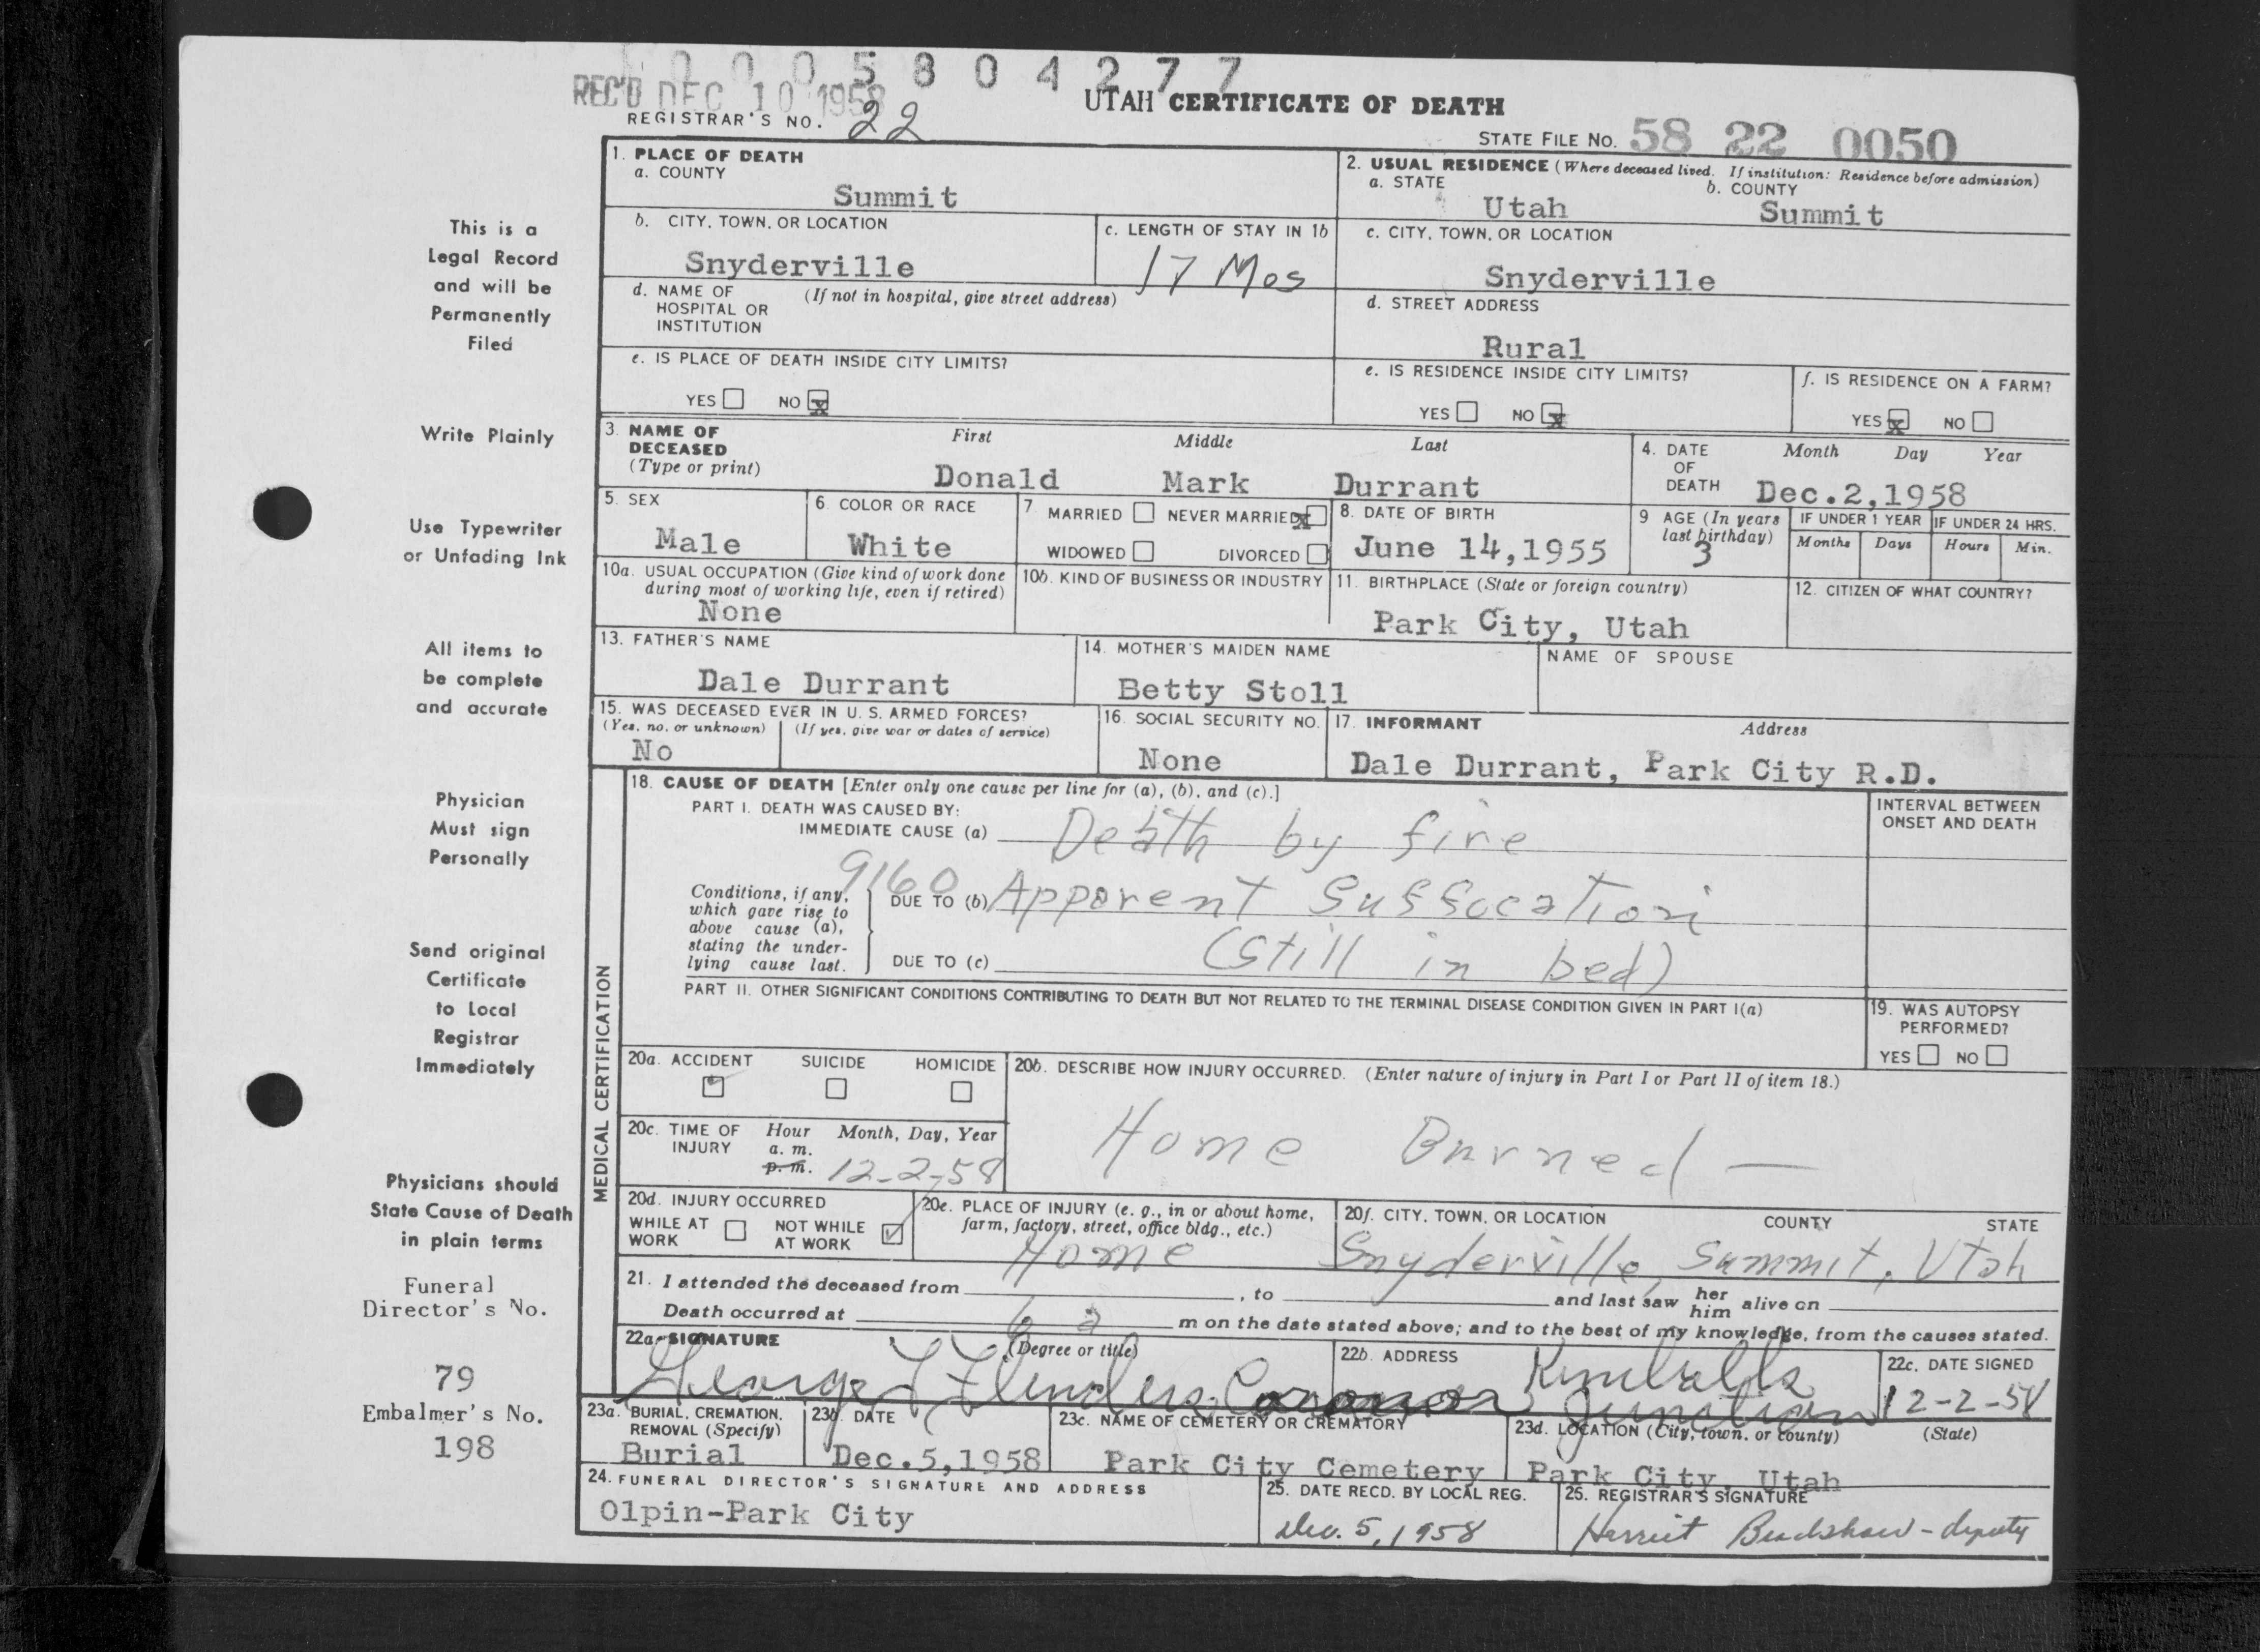 0005804277
REC'D DEC 10 1958
UTAH CERTIFICATE OF DEATH
REGISTRAR'S NO. 22
STATE FILE NO. 58 22 0050
This is a
Legal Record
and will be
Permanently
Filed
Write Plainly
Use Typewriter
or Unfading Ink
All items to
be complete
and accurate
Physician
Must sign
Personally
Send original
Certificate
to Local
Registrar
Immediately
Physicians should
State Cause of Death
in plain terms
Funeral
Director's No.
79
Embalmer's No.
198
1. PLACE OF DEATH
a. COUNTY
Summit
2. USUAL RESIDENCE (Where deceased lived. If institution: Residence before admission)
a. STATE
Utah
b. COUNTY
Summit
b. CITY, TOWN, OR LOCATION
Snyderville
c. LENGTH OF STAY IN 1b
17 Mos
c. CITY, TOWN, OR LOCATION
Snyderville
d. NAME OF HOSPITAL OR INSTITUTION
(If not in hospital, give street address)
d. STREET ADDRESS
Rural
e. IS PLACE OF DEATH INSIDE CITY LIMITS?
YES NO x
e. IS RESIDENCE INSIDE CITY LIMITS?
YES NO x
f. IS RESIDENCE ON A FARM?
YES x NO
3. NAME OF DECEASED
(Type or print)
First Middle Last
Donald Mark Durrant
4. DATE OF DEATH
Month Day Year
Dec.2,1958
5. SEX
Male
6. COLOR OR RACE
White
7 MARRIED NEVER MARRIED x
WIDOWED DIVORCED
8. DATE OF BIRTH
June 14,1955
9 AGE (In years last birthday)
3
IF UNDER 1 YEAR
Months Days
IF UNDER 24 HRS.
Hours Min.
10a. USUAL OCCUPATION (Give kind of work done during most of working life, even if retired)
None
10b. KIND OF BUSINESS OR INDUSTRY
11. BIRTHPLACE (State or foreign country)
Park City, Utah
12. CITIZEN OF WHAT COUNTRY?
13. FATHER'S NAME
Dale Durrant
14. MOTHER'S MAIDEN NAME
Betty Stoll
NAME OF SPOUSE
15. WAS DECEASED EVER IN U. S. ARMED FORCES?
(Yes, no, or unknown) (If yes, give war or dates of service)
No
16. SOCIAL SECURITY NO.
None
17. INFORMANT Address
Dale Durrant, Park City R.D.
MEDICAL CERTIFICATION
18. CAUSE OF DEATH [Enter only one cause per line for (a), (b), and (c).]
PART I. DEATH WAS CAUSED BY:
IMMEDIATE CAUSE (a) Death by fire
INTERVAL BETWEEN ONSET AND DEATH
9160
Conditions, if any, which gave rise to above cause (a), stating the underlying cause last.
DUE TO (b) Apparent Suffocation
DUE TO (c) (Still in bed)
PART II. OTHER SIGNIFICANT CONDITIONS CONTRIBUTING TO DEATH BUT NOT RELATED TO THE TERMINAL DISEASE CONDITION GIVEN IN PART I(a)
19. WAS AUTOPSY PERFORMED?
YES NO
20a. ACCIDENT SUICIDE HOMICIDE
20b. DESCRIBE HOW INJURY OCCURRED. (Enter nature of injury in Part I or Part II of item 18.)
Home Burned —
20c. TIME OF INJURY
Hour Month, Day, Year
a. m.
p. m. 12-2-58
20d. INJURY OCCURRED
WHILE AT WORK NOT WHILE AT WORK ✓
20e. PLACE OF INJURY (e. g., in or about home, farm, factory, street, office bldg., etc.)
Home
20f. CITY, TOWN, OR LOCATION COUNTY STATE
Snyderville, Summit, Utah
21. I attended the deceased from , to and last saw her him alive on
Death occurred at 6 a m on the date stated above; and to the best of my knowledge, from the causes stated.
22a. SIGNATURE (Degree or title)
George Coronor
22b. ADDRESS
Kimballs Junction
22c. DATE SIGNED
12-2-58
23a. BURIAL, CREMATION, REMOVAL (Specify)
Burial
23b. DATE
Dec.5,1958
23c. NAME OF CEMETERY OR CREMATORY
Park City Cemetery
23d. LOCATION (City, town, or county) (State)
Park City, Utah
24. FUNERAL DIRECTOR'S SIGNATURE AND ADDRESS
Olpin-Park City
25. DATE RECD. BY LOCAL REG.
Dec. 5, 1958
26. REGISTRAR'S SIGNATURE
Harriet Bradshaw - deputy